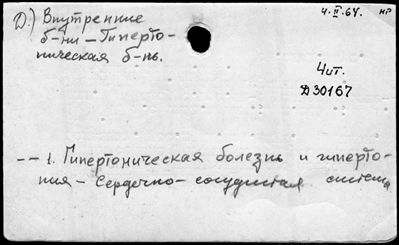 Д.) Внутренние
б-ни – Гиперто-
ническая б-нь.
4.II.64. НР
Чит.
Д30167
-- 1. Гипертоническая болезнь и гиперто-
ния – Сердечно-сосудистая система